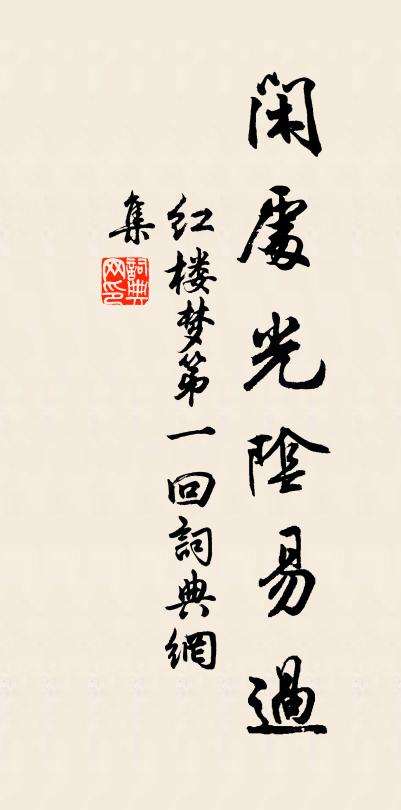 闲處光陰易過
红楼梦第一回詞典網
集
詞典网印